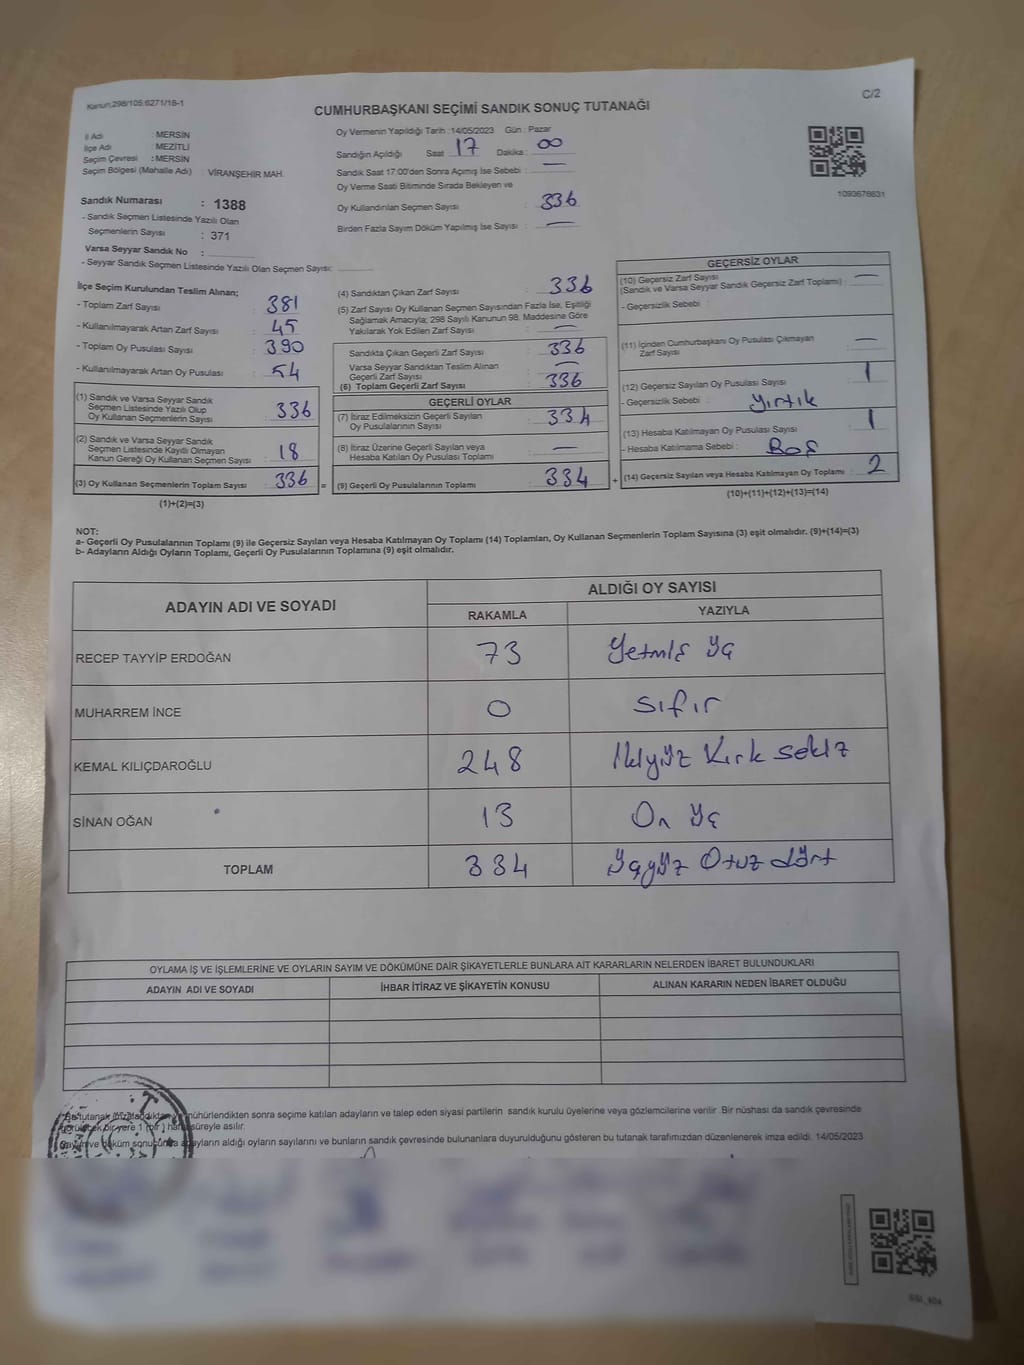 Kanun:298/105:6271/18-1
C/2
CUMHURBAŞKANI SEÇİMİ SANDIK SONUÇ TUTANAĞI
İl Adı : MERSİN
İlçe Adı : MEZİTLİ
Seçim Çevresi : MERSİN
Seçim Bölgesi (Mahalle Adı) : VİRANŞEHİR MAH.
Sandık Numarası : 1388
- Sandık Seçmen Listesinde Yazılı Olan
Seçmenlerin Sayısı : 371
Varsa Seyyar Sandık No :
- Seyyar Sandık Seçmen Listesinde Yazılı Olan Seçmen Sayısı:
Oy Vermenin Yapıldığı Tarih : 14/05/2023 Gün : Pazar
Sandığın Açıldığı Saat : 17 Dakika : 00
Sandık Saat 17:00'den Sonra Açılmış İse Sebebi : —
Oy Verme Saati Bitiminde Sırada Bekleyen ve
Oy Kullandırılan Seçmen Sayısı : 336
Birden Fazla Sayım Döküm Yapılmış İse Sayısı : —
1090676631
İlçe Seçim Kurulundan Teslim Alınan;
- Toplam Zarf Sayısı : 381
- Kullanılmayarak Artan Zarf Sayısı : 45
- Toplam Oy Pusulası Sayısı : 390
- Kullanılmayarak Artan Oy Pusulası : 54
(1) Sandık ve Varsa Seyyar Sandık
Seçmen Listesinde Yazılı Olup
Oy Kullanan Seçmenlerin Sayısı : 336
(2) Sandık ve Varsa Seyyar Sandık
Seçmen Listesinde Kayıtlı Olmayan
Kanun Gereği Oy Kullanan Seçmen Sayısı : 18
(3) Oy Kullanan Seçmenlerin Toplam Sayısı : 336 =
(1)+(2)=(3)
(4) Sandıktan Çıkan Zarf Sayısı : 336
(5) Zarf Sayısı Oy Kullanan Seçmen Sayısından Fazla İse, Eşitliği
Sağlamak Amacıyla; 298 Sayılı Kanunun 98. Maddesine Göre
Yakılarak Yok Edilen Zarf Sayısı : —
Sandıkta Çıkan Geçerli Zarf Sayısı : 336
Varsa Seyyar Sandıktan Teslim Alınan
Geçerli Zarf Sayısı : —
(6) Toplam Geçerli Zarf Sayısı : 336
GEÇERLİ OYLAR
(7) İtiraz Edilmeksizin Geçerli Sayılan
Oy Pusulalarının Sayısı : 334
(8) İtiraz Üzerine Geçerli Sayılan veya
Hesaba Katılan Oy Pusulası Toplamı : —
(9) Geçerli Oy Pusulalarının Toplamı : 334 +
GEÇERSİZ OYLAR
(10) Geçersiz Zarf Sayısı
(Sandık ve Varsa Seyyar Sandık Geçersiz Zarf Toplamı) : —
- Geçersizlik Sebebi :
(11) İçinden Cumhurbaşkanı Oy Pusulası Çıkmayan
Zarf Sayısı : —
(12) Geçersiz Sayılan Oy Pusulası Sayısı : 1
- Geçersizlik Sebebi : Yırtık
(13) Hesaba Katılmayan Oy Pusulası Sayısı : 1
- Hesaba Katılmama Sebebi : Boş
(14) Geçersiz Sayılan veya Hesaba Katılmayan Oy Toplamı : 2
(10)+(11)+(12)+(13)=(14)
NOT:
a- Geçerli Oy Pusulalarının Toplamı (9) ile Geçersiz Sayılan veya Hesaba Katılmayan Oy Toplamı (14) Toplamları, Oy Kullanan Seçmenlerin Toplam Sayısına (3) eşit olmalıdır. (9)+(14)=(3)
b- Adayların Aldığı Oyların Toplamı, Geçerli Oy Pusulalarının Toplamına (9) eşit olmalıdır.
ADAYIN ADI VE SOYADI
ALDIĞI OY SAYISI
RAKAMLA YAZIYLA
RECEP TAYYİP ERDOĞAN 73 Yetmiş üç
MUHARREM İNCE 0 sıfır
KEMAL KILIÇDAROĞLU 248 İkiyüz Kırk sekiz
SİNAN OĞAN 13 On üç
TOPLAM 334 Üçyüz Otuz dört
OYLAMA İŞ VE İŞLEMLERİNE VE OYLARIN SAYIM VE DÖKÜMÜNE DAİR ŞİKAYETLERLE BUNLARA AİT KARARLARIN NELERDEN İBARET BULUNDUKLARI
ADAYIN ADI VE SOYADI İHBAR İTİRAZ VE ŞİKAYETİN KONUSU ALINAN KARARIN NEDEN İBARET OLDUĞU
mühürlendikten sonra seçime katılan adayların ve talep eden siyasi partilerin sandık kurulu üyelerine veya gözlemcilerine verilir. Bir nüshası da sandık çevresinde
bir yere 1 (bir) hafta süreyle asılır.
döküm sonucunda adayların aldığı oyların sayılarını ve bunların sandık çevresinde bulunanlara duyurulduğunu gösteren bu tutanak tarafımızdan düzenlenerek imza edildi. 14/05/2023